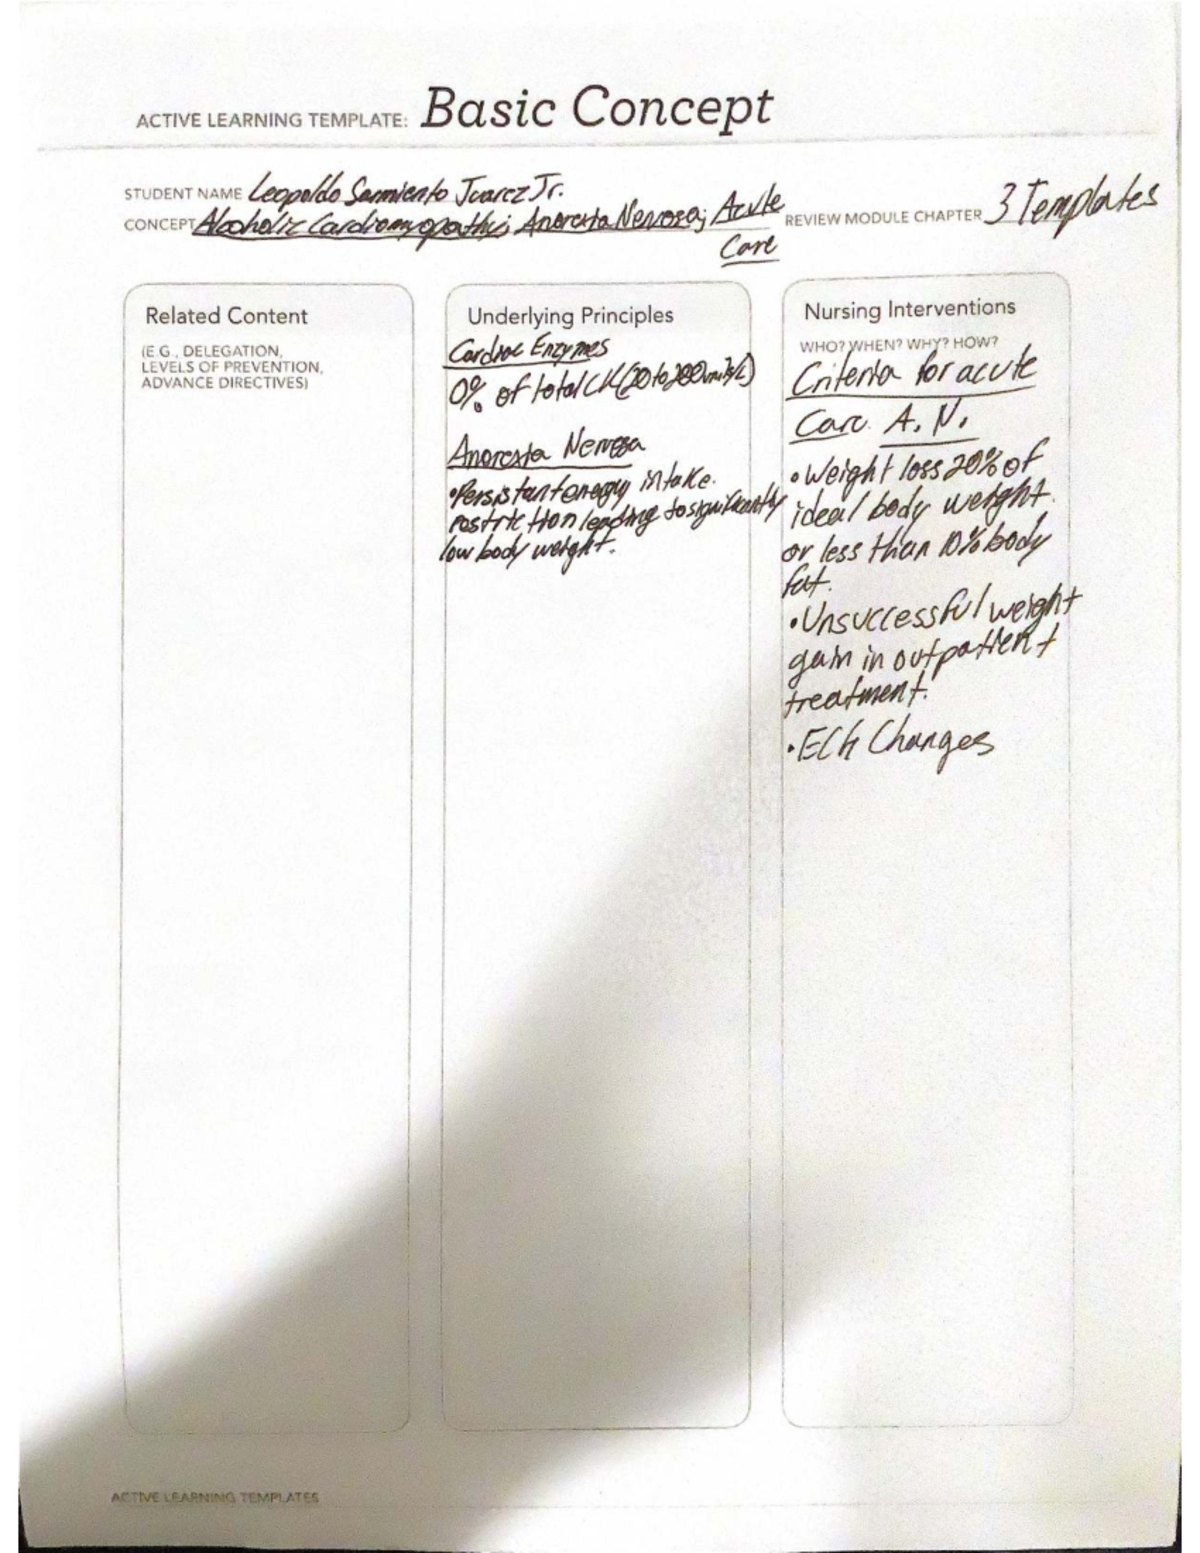 ACTIVE LEARNING TEMPLATE: Basic Concept
STUDENT NAME Leopoldo Sarmiento Juarez Jr.
CONCEPT Alcoholic Cardiomyopathy; Anorexia Nervosa; Acute Care
REVIEW MODULE CHAPTER 3 Templates
Related Content
(E.G., DELEGATION,
LEVELS OF PREVENTION,
ADVANCE DIRECTIVES)
Underlying Principles
Cardiac Enzymes
0% of total CK (20 to 200 units/L)
Anorexia Nervosa
• Persistant energy intake
restriction leading to significantly
low body weight.
Nursing Interventions
WHO? WHEN? WHY? HOW?
Criteria for acute
Care A. N.
• Weight loss 20% of
ideal body weight
or less than 10% body
fat.
• Unsuccessful weight
gain in outpatient
treatment.
• ECG Changes
ACTIVE LEARNING TEMPLATES